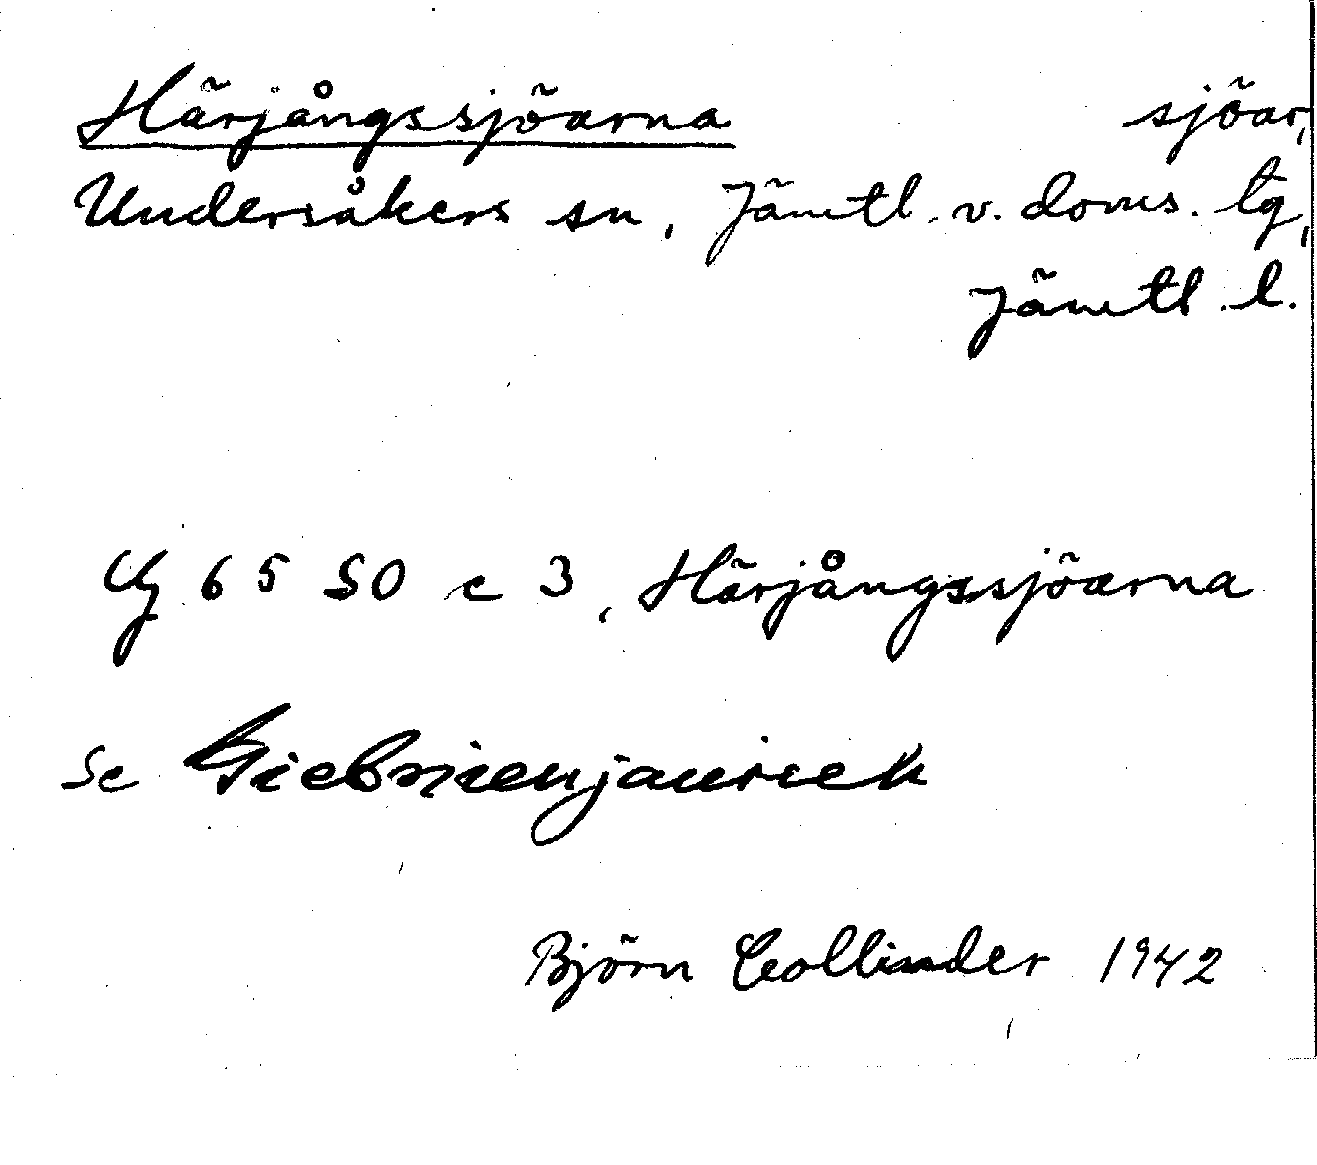 Härjångssjöarna sjöar,
Undersåkers sn, Jämtl. v. doms. lg,
Jämtl. l.
65 SO c 3, Härjångssjöarna
Se
Björn Collinder 1942